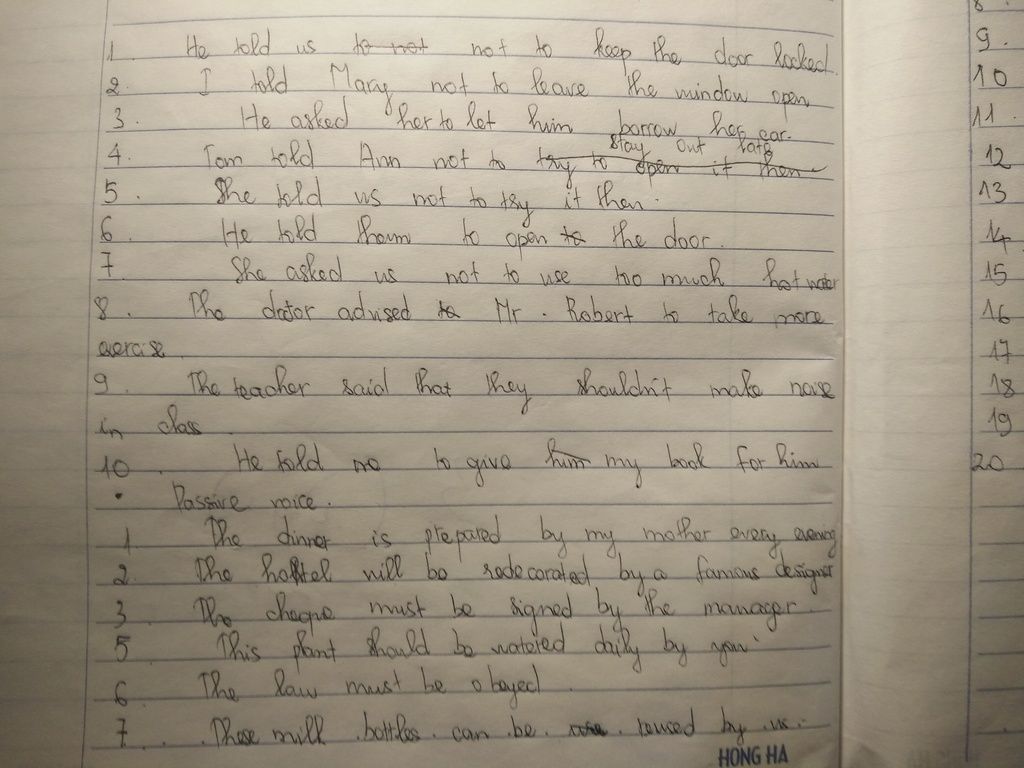 1 He told us to not not to keep the door locked.
2. I told Mary not to leave the window open
3. He asked her to let him borrow her car.
stay out late
4. Tom told Ann not to try to open it then
5. She told us not to try it then.
6. He told them to open to the door.
7 She asked us not to use too much hot water
8. The doctor advised to Mr. Robert to take more
exercise
9. The teacher said that they shouldn't make noise
in class
10. He told me to give him my book for him
• Passive voice.
1 The dinner is prepared by my mother every evening
2 The hotel will be redecorated by a famous designer
3 The cheque must be signed by the manager.
5 This plant should be watered daily by you.
6 The law must be obeyed
7 These milk bottles can be reused by us.
HONG HA
8
9.
10
11.
12
13
14
15
16
17
18
19
20